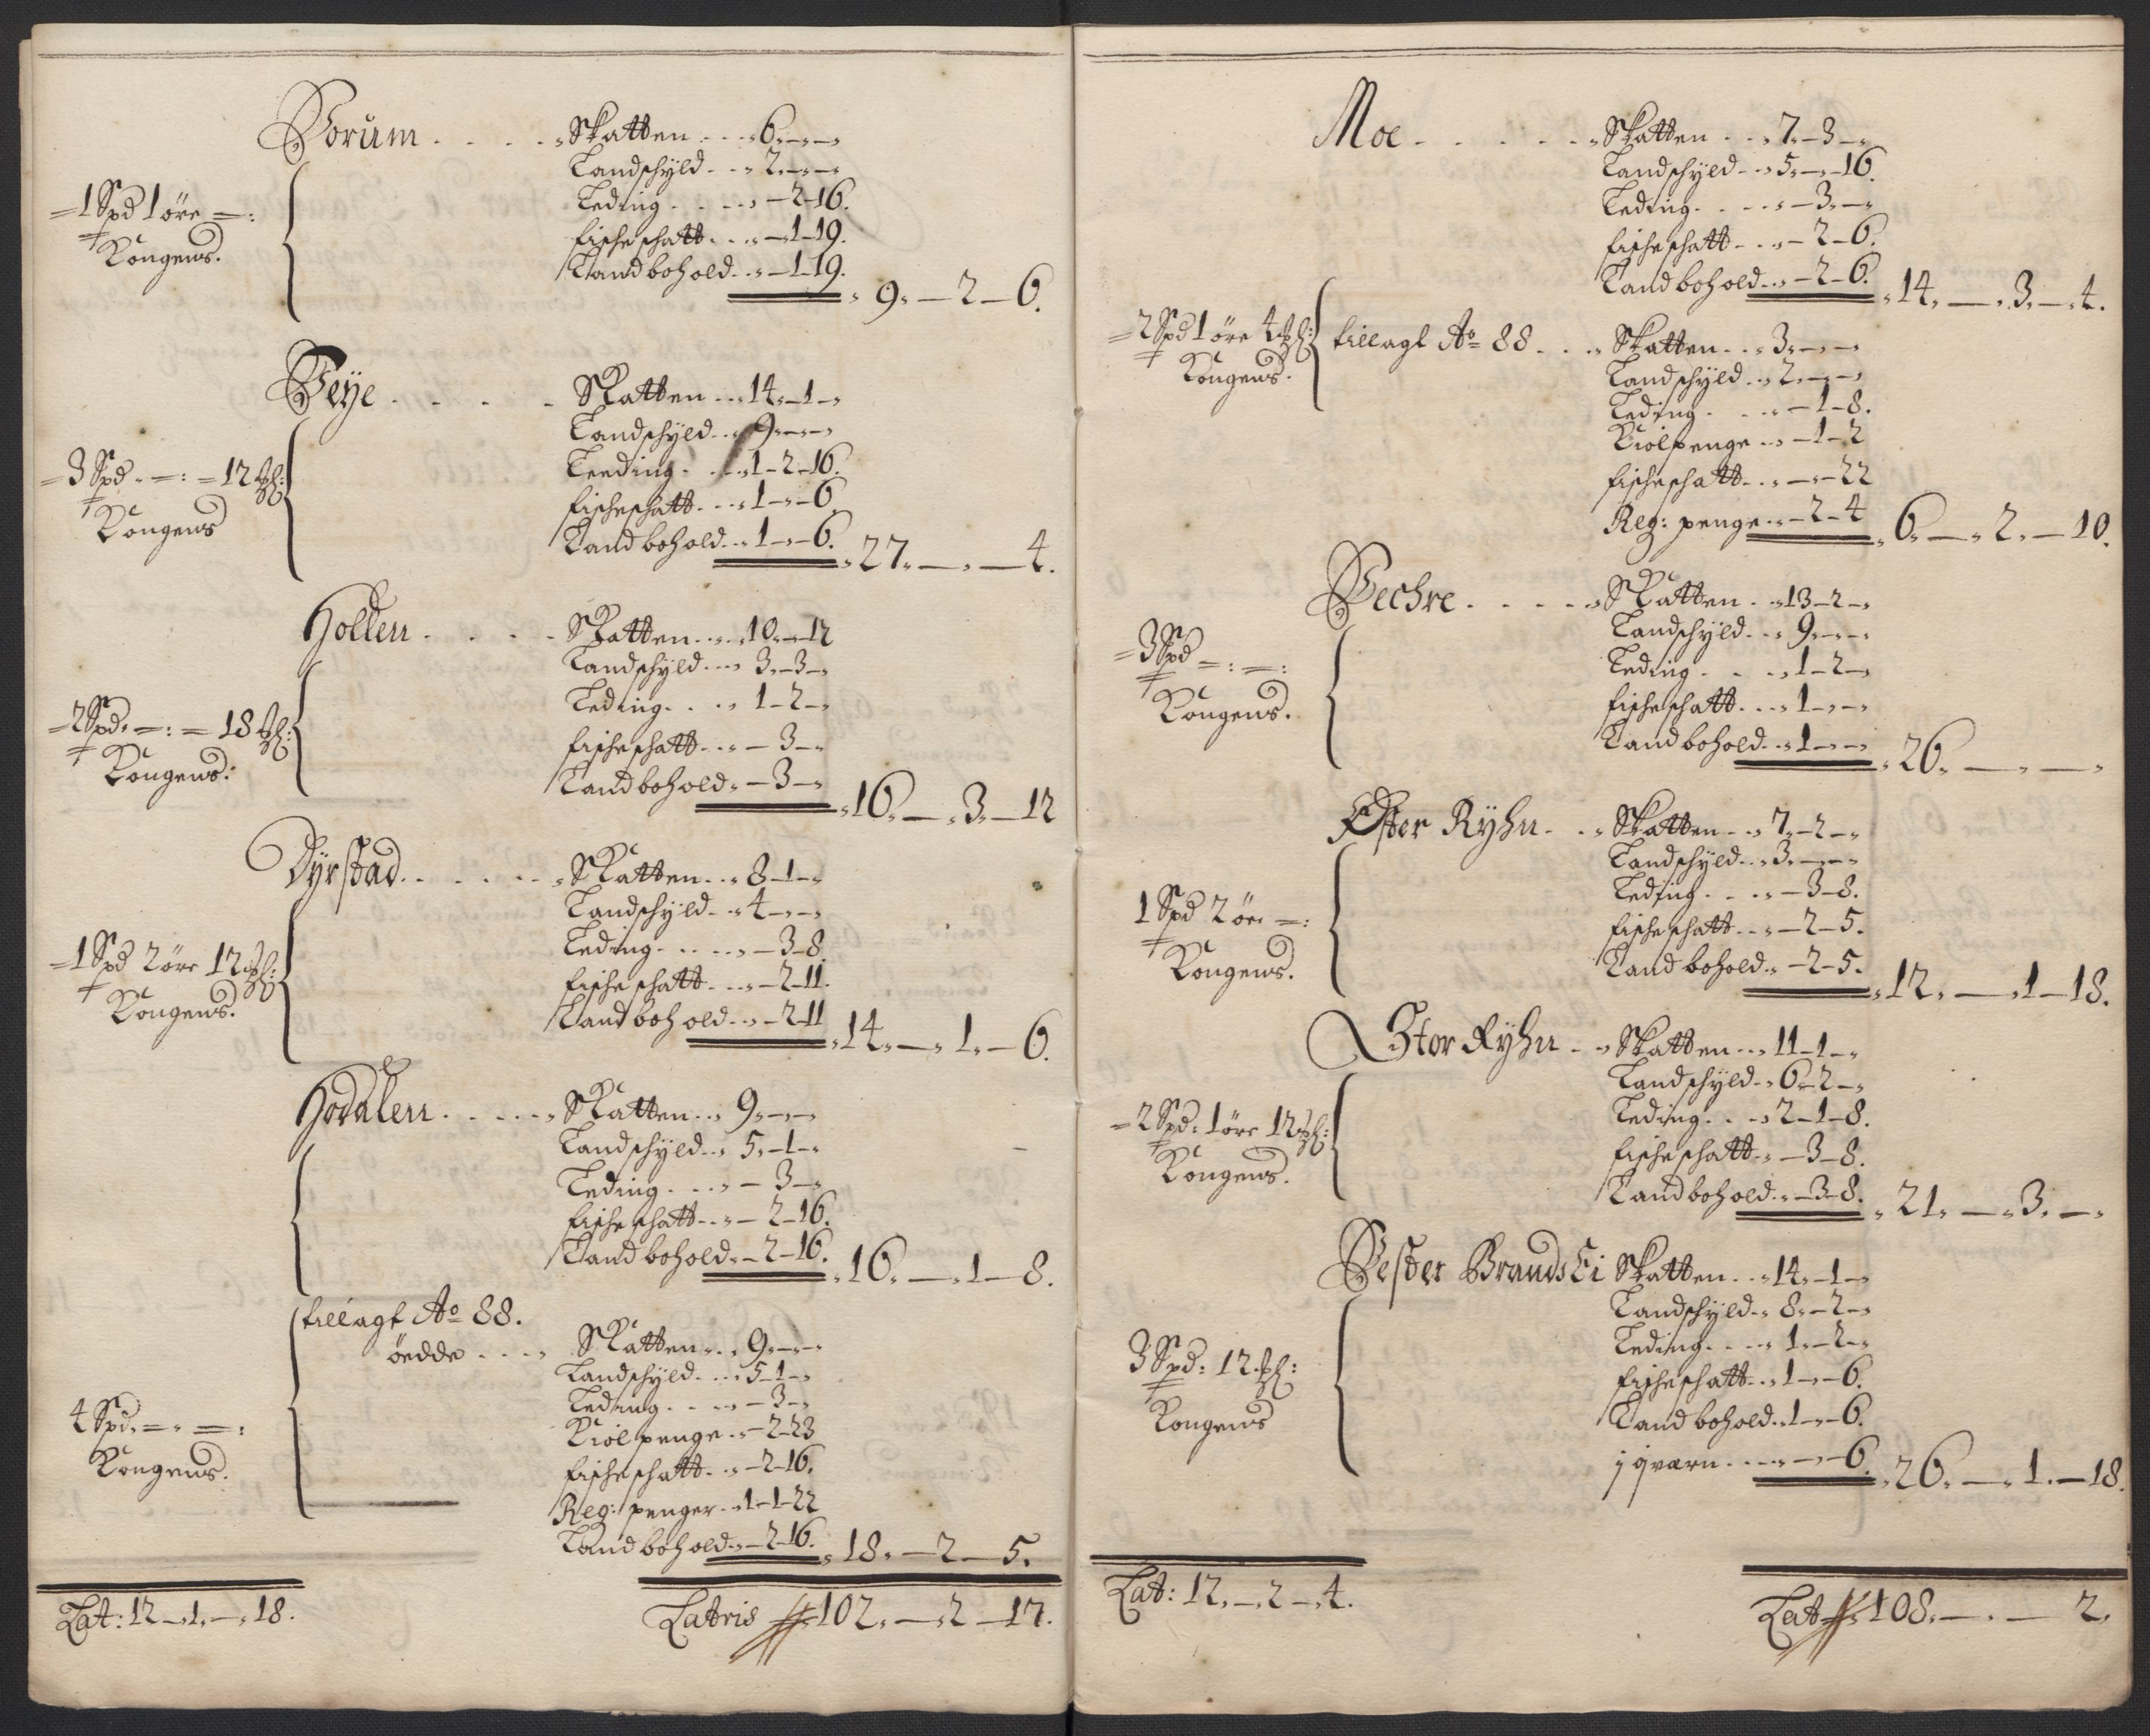 Vorum . . . . Skatten . . . 6. — —
Landschÿld . . 2. — —
Leding . . . . — 2 — 16.
fischeschatt . . . — 1 — 19.
Landbohold . . — 1 — 19.
9. — 2 — 6.
= 1 Spd 1 öre =:
Kongens.
Veÿe . . . . Skatten . . . 14. — 1 —
Landschÿld . . 9. — —
Leeding . . . 1 — 2 — 16.
fischeschatt . . . 1 — — 6.
Landbohold . . 1 — — 6.
27. — . — 4.
= 3 Spd. =: = 12
Kongens
Hollen . . . . Skatten . . . 10. — — 12
Landschÿld . . . 3. — 3 —
Leding . . . 1 — 2 —
fischeschatt . . . — 3 —
Landbohold . — 3 —
16. — . 3. — 12
= 2 Spd. =: = 18
Kongens.
Dÿrstad . . . . Skatten . . . 8 — 1 —
Landschÿld . . 4 — —
Leding . . . . — 3 — 8.
fischeschatt . . . — 2 — 11.
Landbohold . . — 2 — 11
14. — . 1. — 6.
= 1 Spd 2 öre 12
Kongens.
Hodalen . . . . . Skatten . . 9. — —
Landschÿld . . 5. — 1 —
Leding . . . — 3 —
fischeschatt . . . — 2 — 16.
Landbohold . — 2 — 16.
16. — . 1 — 8.
tillagt Ao 88.
öedde . . . . Skatten . . . 9. — —
Landschÿld . . . 5 — 1 —
Leding . . . . — 3 —
Kiölpenge . . — 2 — 23
fischeschatt . . — 2 — 16.
Reg: penger . . 1 — 1 — 22
Landbohold . . — 2 — 16.
18. — 2 — 5.
4 Spd. = . =:
Kongens.
Lat: 12 — 1. — . 18.
Latris 102. — . 2 — 17.
Moe . . . . . Skatten . . . 7. — 3 —
Landschÿld . . 5. — — 16.
Leding . . . . — 3. —
fischeschatt . . . — 2 — 6.
Landbohold . . — 2 — 6.
14. — . 3. — . 4.
= 2 Spd 1 öre 4
Kongens.
tillagt Ao 88 . . . Skatten . . . 3. — —
Landschÿld . . 2. — —
Leding . . . — 1 — 8.
Kiölpenge . . — 1 — 2
fischeschatt . . . — — 22
Reg: penge . . — 2 — 4
6. — . 2. — 10.
Vechre . . . . . Skatten . . 13 — 2 —
Landschÿld . . . 9. — —
Leding . . . . 1 — 2 —
fischeschatt . . . . 1 — —
Landbohold . . 1 — —
26. — . — .
= 3 Spd =: =:
Kongens.
Öster Rÿhn . . . Skatten . . . 7. — 2 —
Landschÿld . . . 3. — —
Leding . . . . — 3 — 8.
fischeschatt . . . — 2 — 5.
Landbohold . . — 2 — 5.
12. — . 1 — 18.
1 Spd 2 öre =:
Kongens.
Stor Rÿhn . . Skatten . . . 11 — 1 —
Landschÿld . . 6 — 2 —
Leding . . . 2 — 1 — 8.
fischeschatt . . — 3 — 8.
Landbohold . . — 3 — 8.
21. — . 3. — .
= 2 Spd: 1 öre 12
Kongens.
Vester Brandsli Skatten . . . 14. — 1 —
Landschÿld . . 8. — 2 —
Leding . . . . 1. — 2 —
fischeschatt . . . 1 — — 6.
Landbohold . . 1 — — 6.
j qværn . . . . — — 6.
26. — . 1. — 18.
3 Spd: 12
Kongens
Lat: 12. — . 2 — . 4.
Lat 108. — . — 2.